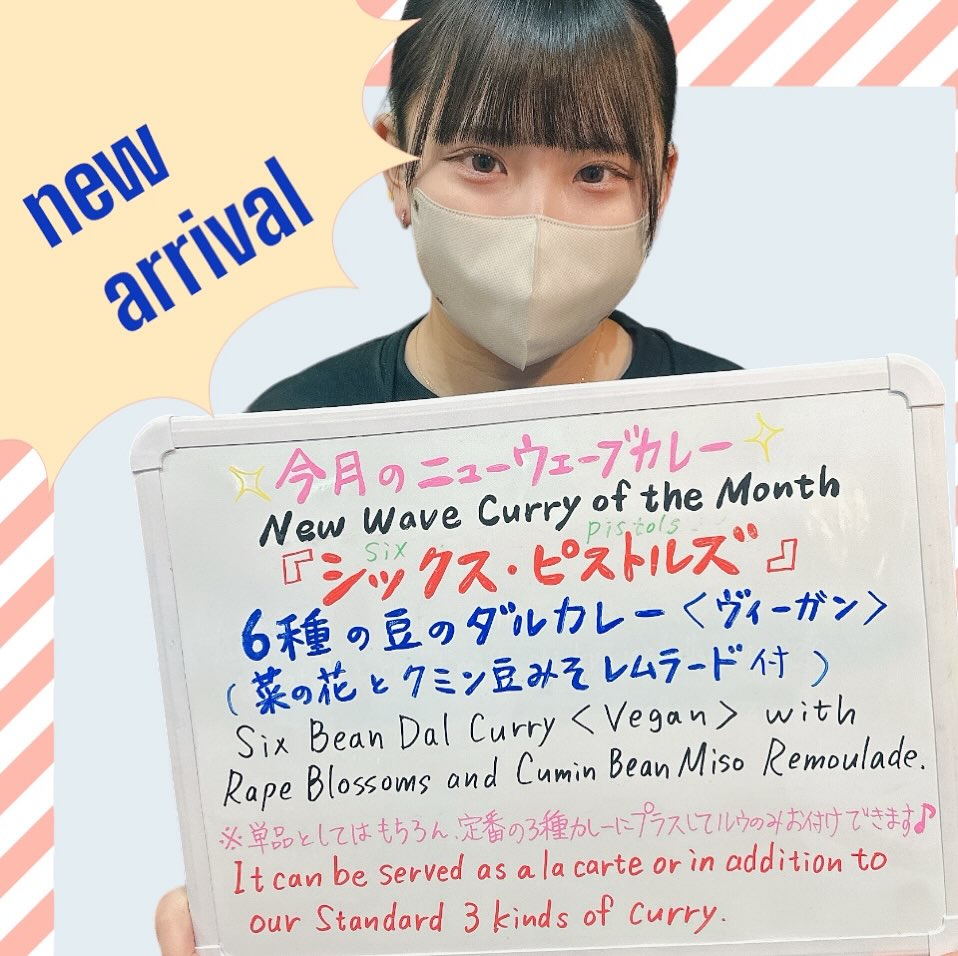 new
arrival
今月のニューウェーブカレー
New Wave Curry of the Month
six pistols
『シックス・ピストルズ』
6種の豆のダルカレー<ヴィーガン>
(菜の花とクミン豆みそレムラード付)
Six Bean Dal Curry <Vegan> with
Rape Blossoms and Cumin Bean Miso Remoulade.
※単品としてはもちろん、定番の3種カレーにプラスしてルウのみお付けできます♪
It can be served as a la carte or in addition to
our Standard 3 kinds of curry.